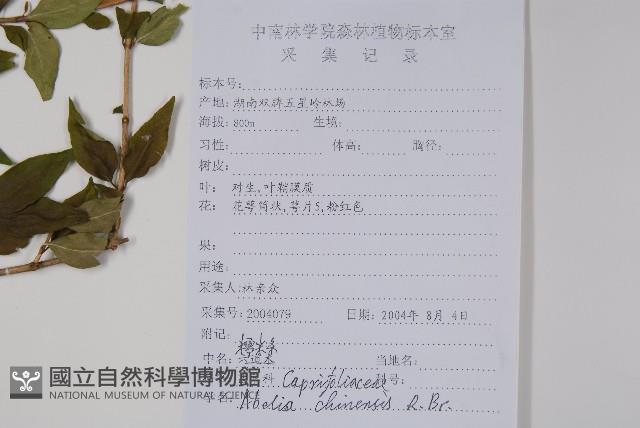 中南林学院森林植物标本室
采集记录
标本号:
产地: 湖南双牌五星岭林场
海拔: 800m 生境:
习性: 体高: 胸径:
树皮:
叶: 对生,叶鞘膜质
花: 花萼筒状,萼片5,粉红色
果:
用途:
采集人: 林亲众
采集号: 2004079 日期: 2004年 8月 4日
附记:
中名: 当地名:
科 Caprifoliaceae 科号:
学名: Abelia chinensis R.Br.
國立自然科學博物館
NATIONAL MUSEUM OF NATURAL SCIENCE